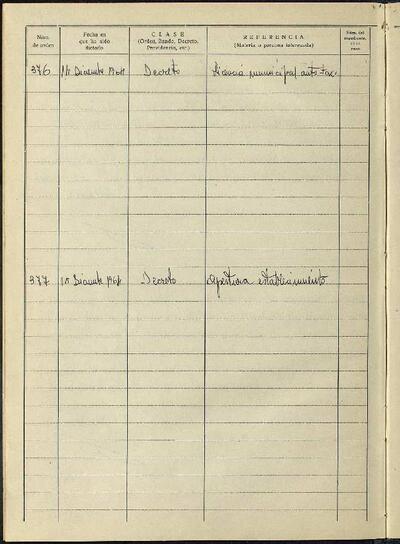 Núm. de orden
Fecha en que ha sido dictado
CLASE (Orden, Bando, Decreto, Providencia, etc.)
REFERENCIA (Materia o persona interesada)
Núm. del
376 Diciembre Decreto licencia municipal auto-taxi
377 Diciembre Decreto apertura establecimiento